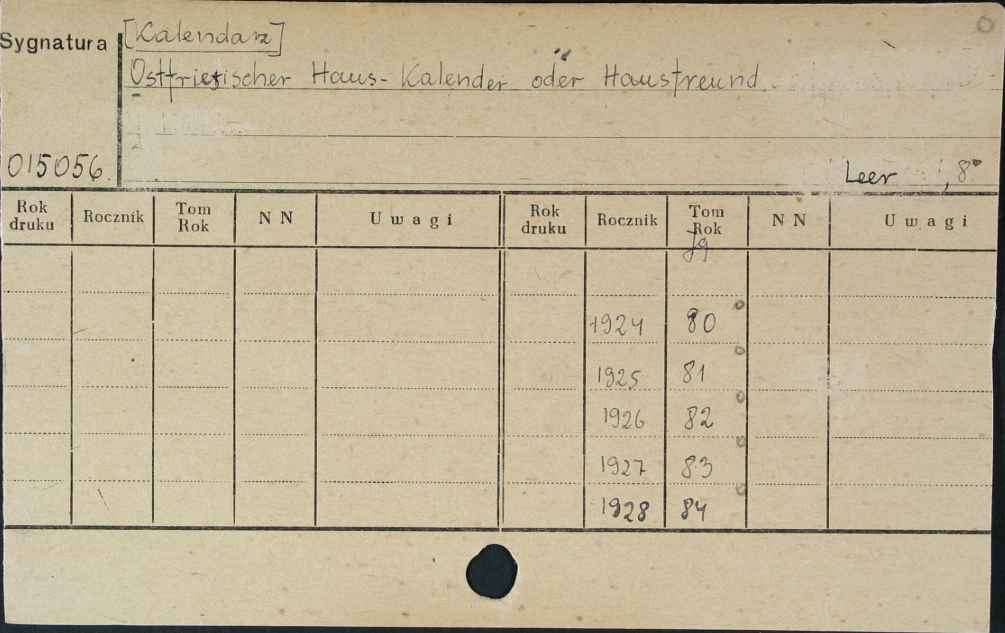 [Kalendarz]
Sygnatura
Ostfriesischer Haus-Kalender oder Hausfreund.
015056.
Leer , 8°
Rok druku Rocznik Tom Rok N N Uwagi Rok druku Rocznik Tom Rok N N Uwagi
Jg
1924 80
1925 81
1926 82
1927 83
1928 84